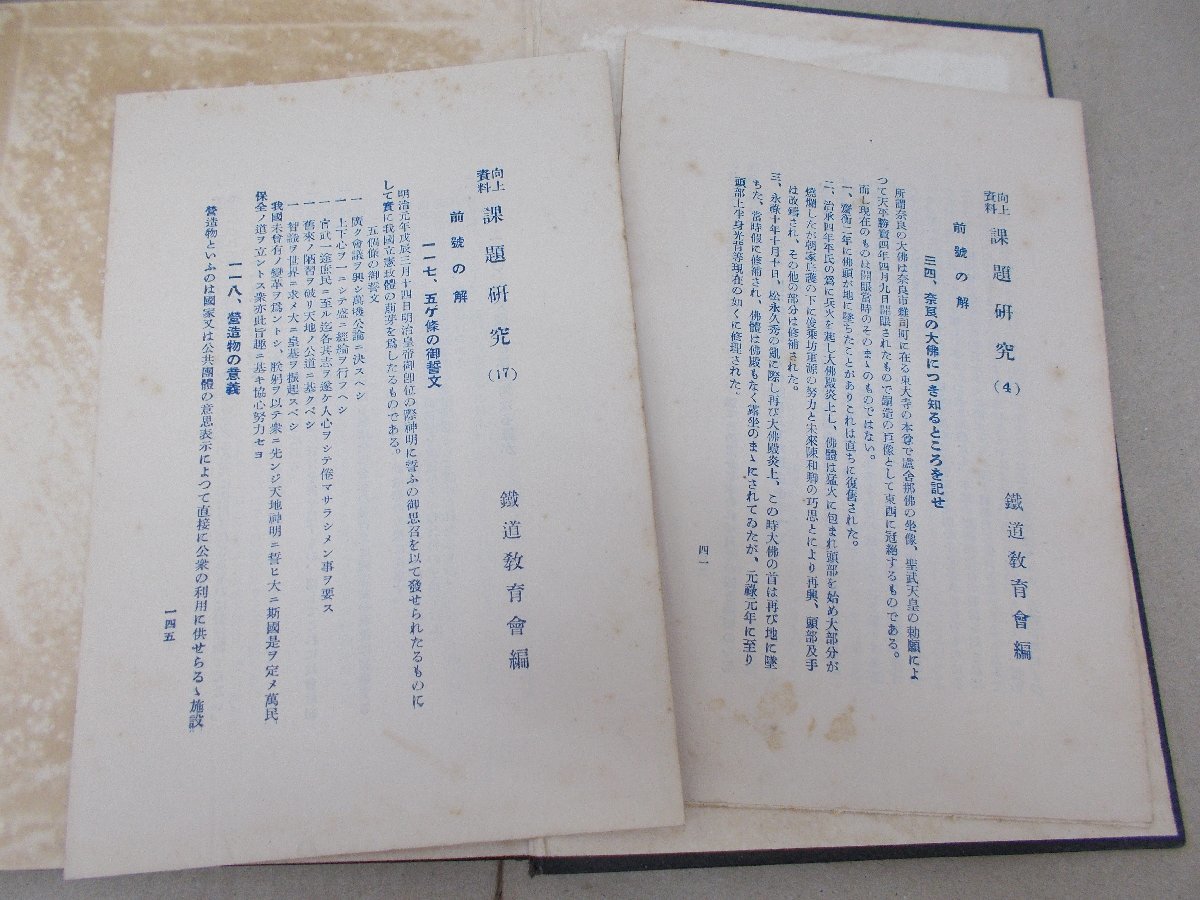 向上資料 課題研究 (4)
鐵道教育會編
前號の解
三四、奈良の大佛につき知るところを記せ
所謂奈良の大佛は奈良市雜司町に在る東大寺の本尊で盧舍那佛の坐像、聖武天皇の勅願によ
つて天平勝寶四年四月九日開眼されたもので鑄造の巨像として東西に冠絕するものである。
而し現在のものは開眼當時のそのまゝのものではない。
一、齋衡二年に佛頭が地に墜ちたことがありこれは直ちに復舊された。
二、治承四年平氏の爲に兵火を起し大佛殿炎上し、佛體は猛火に包まれ頭部を始め大部分が
燒爛したが朝家庇護の下に俊乗坊重源の努力と宋來陳和卿の巧思とにより再興、頭部及手
は改鑄され、その他の部分は修補された。
三、永祿十年十月十日、松永久秀の亂に際し再び大佛殿炎上、この時大佛の首は再び地に墜
ちた、當時假に修補され、佛體は佛殿もなく露坐のまゝにされてゐたが、元祿元年に至り
頭部上半身光背等現在の如くに修理された。
四一
向上資料 課題研究 (17)
鐵道敎育會編
前號の解
一一七、五ケ條の御誓文
明治元年戊辰三月十四日明治皇帝御卽位の際神明に誓ふの御思召を以て發せられたるものに
して實に我國立憲政體の萠芽を爲したるものである。
五個條の御誓文
一 廣ク會議ヲ興シ萬機公論ニ決スヘシ
一 上下心ヲ一ニシテ盛ニ經綸ヲ行フヘシ
一 官武一途庶民ニ至ル迄各其志ヲ遂ケ人心ヲシテ倦マサラシメン事ヲ要ス
一 舊來ノ陋習ヲ破リ天地ノ公道ニ基クベシ
一 智識ヲ世界ニ求メ大ニ皇基ヲ振起スベシ
我國未曾有ノ變革ヲ爲ントシ、朕躬ヲ以テ衆ニ先ンジ天地神明ニ誓ヒ大ニ斯國是ヲ定メ萬民
保全ノ道ヲ立ントス衆亦此旨趣ニ基キ協心努力セヨ
一一八、營造物の意義
營造物といふのは國家又は公共團體の意思表示によつて直接に公衆の利用に供せらるゝ施設
一四五